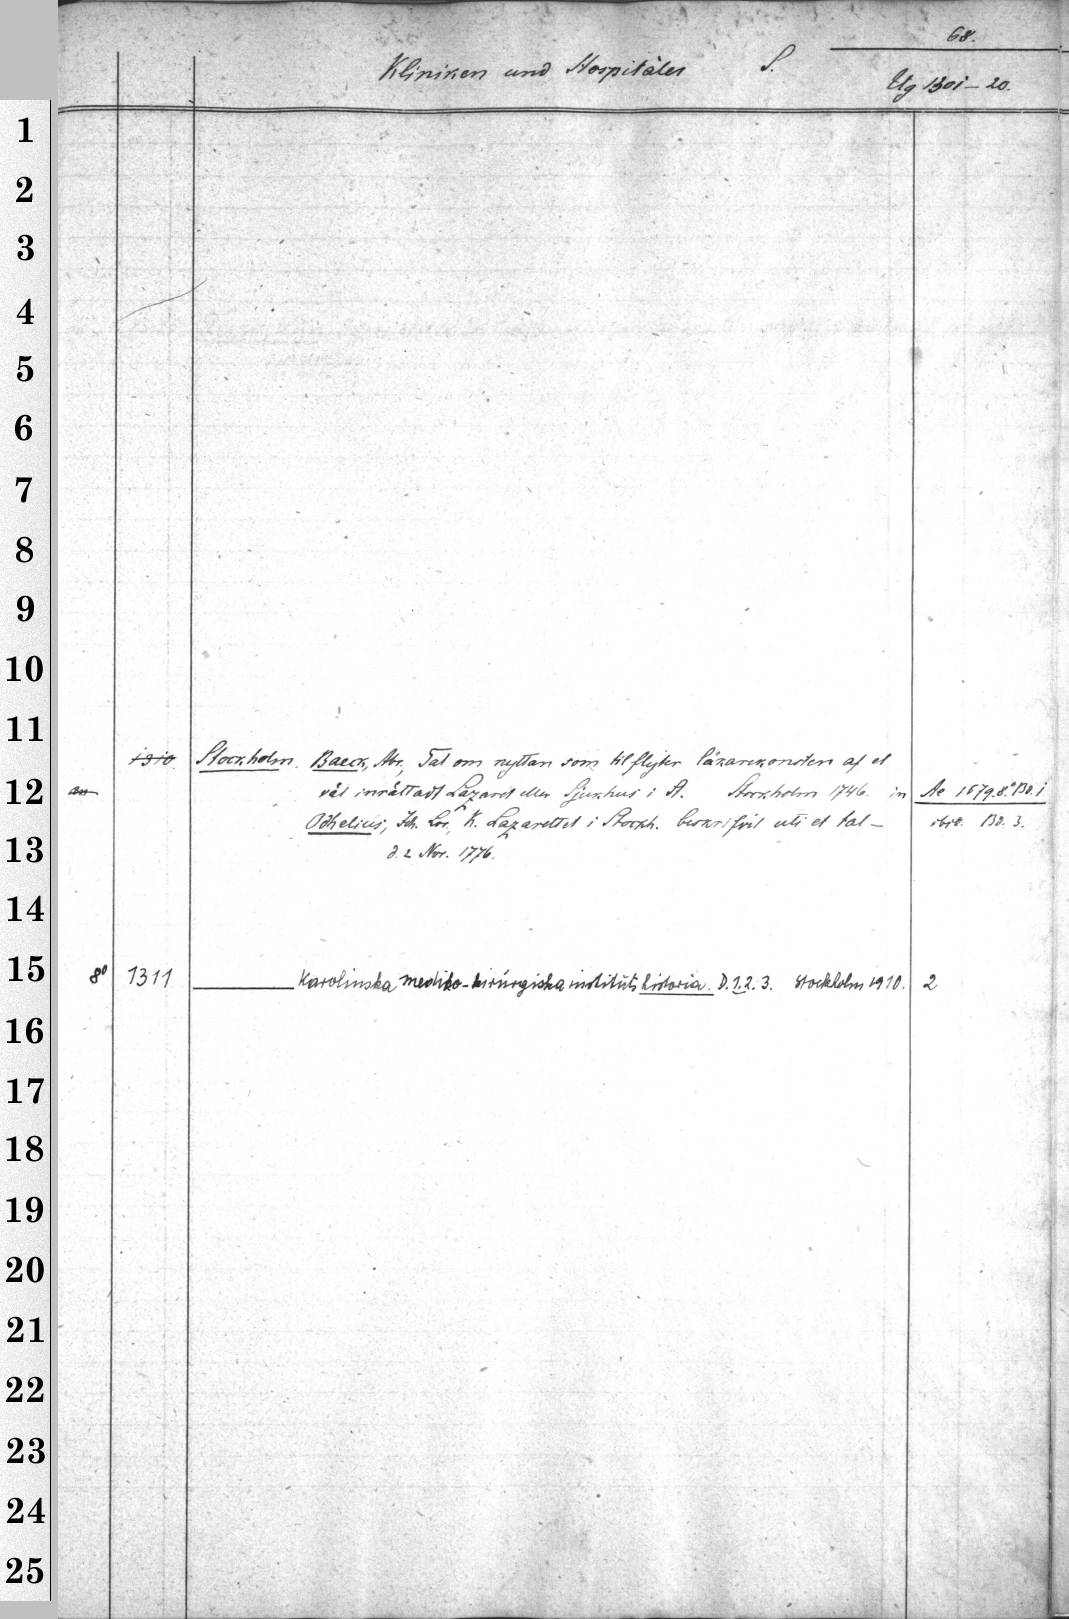 68.
Kliniken und Hospitäler S.
Ug 1301-20.
1
2
3
4
5
6
7
8
9
10
11
1310. Stockholm. Baeck, Abr., Tal om nyttan som tilflyter läkarekonsten af et
12
väl inrättadt Lazaret eller Sjukhus i St. Stockholm 1746. in Ae 1679.8° Bd. i
Odhelius, Joh. Lor., K. Lazarettet i Stockh. beskrifvit uti et tal — ibid. Bd. 3.
13
d. 2 Nov. 1776.
14
15
8° 1311 Karolinska mediko-kirurgiska instituts historia. D. 1.2. 3. Stockholm 1910. 2
16
17
18
19
20
21
22
23
24
25